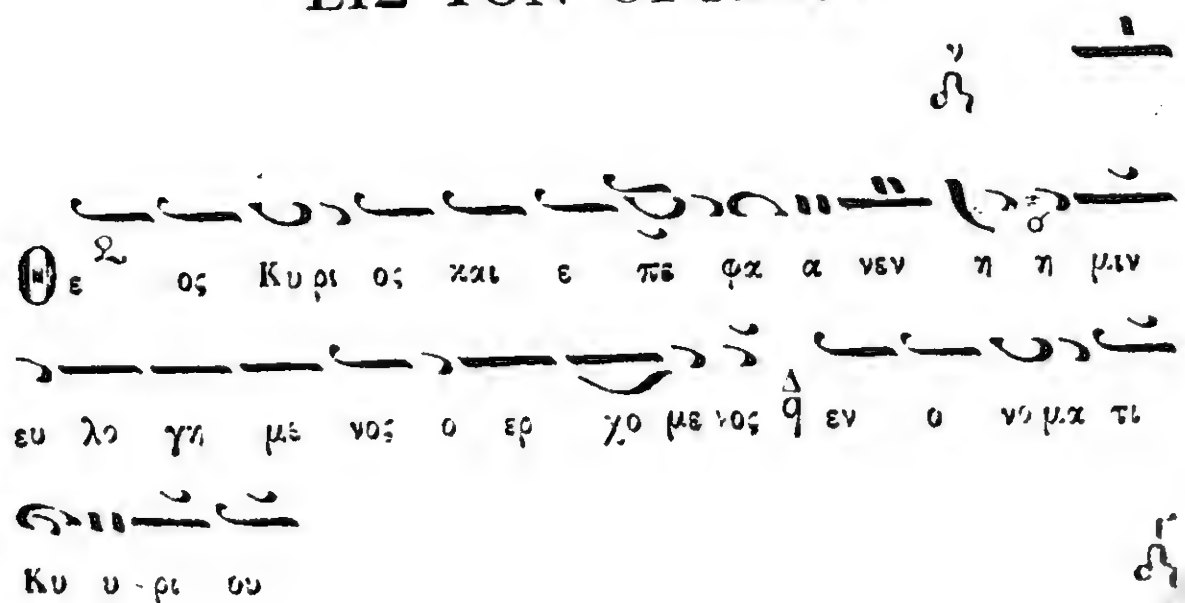 ΕΙΣ ΤΟΝ
Θε ος Κυρι ος και ε πε φα α νεν η η μιν
ευ λο γη με νος ο ερ χο με νος Δ εν ο νο μα τι
Κυ υ - ρι ου